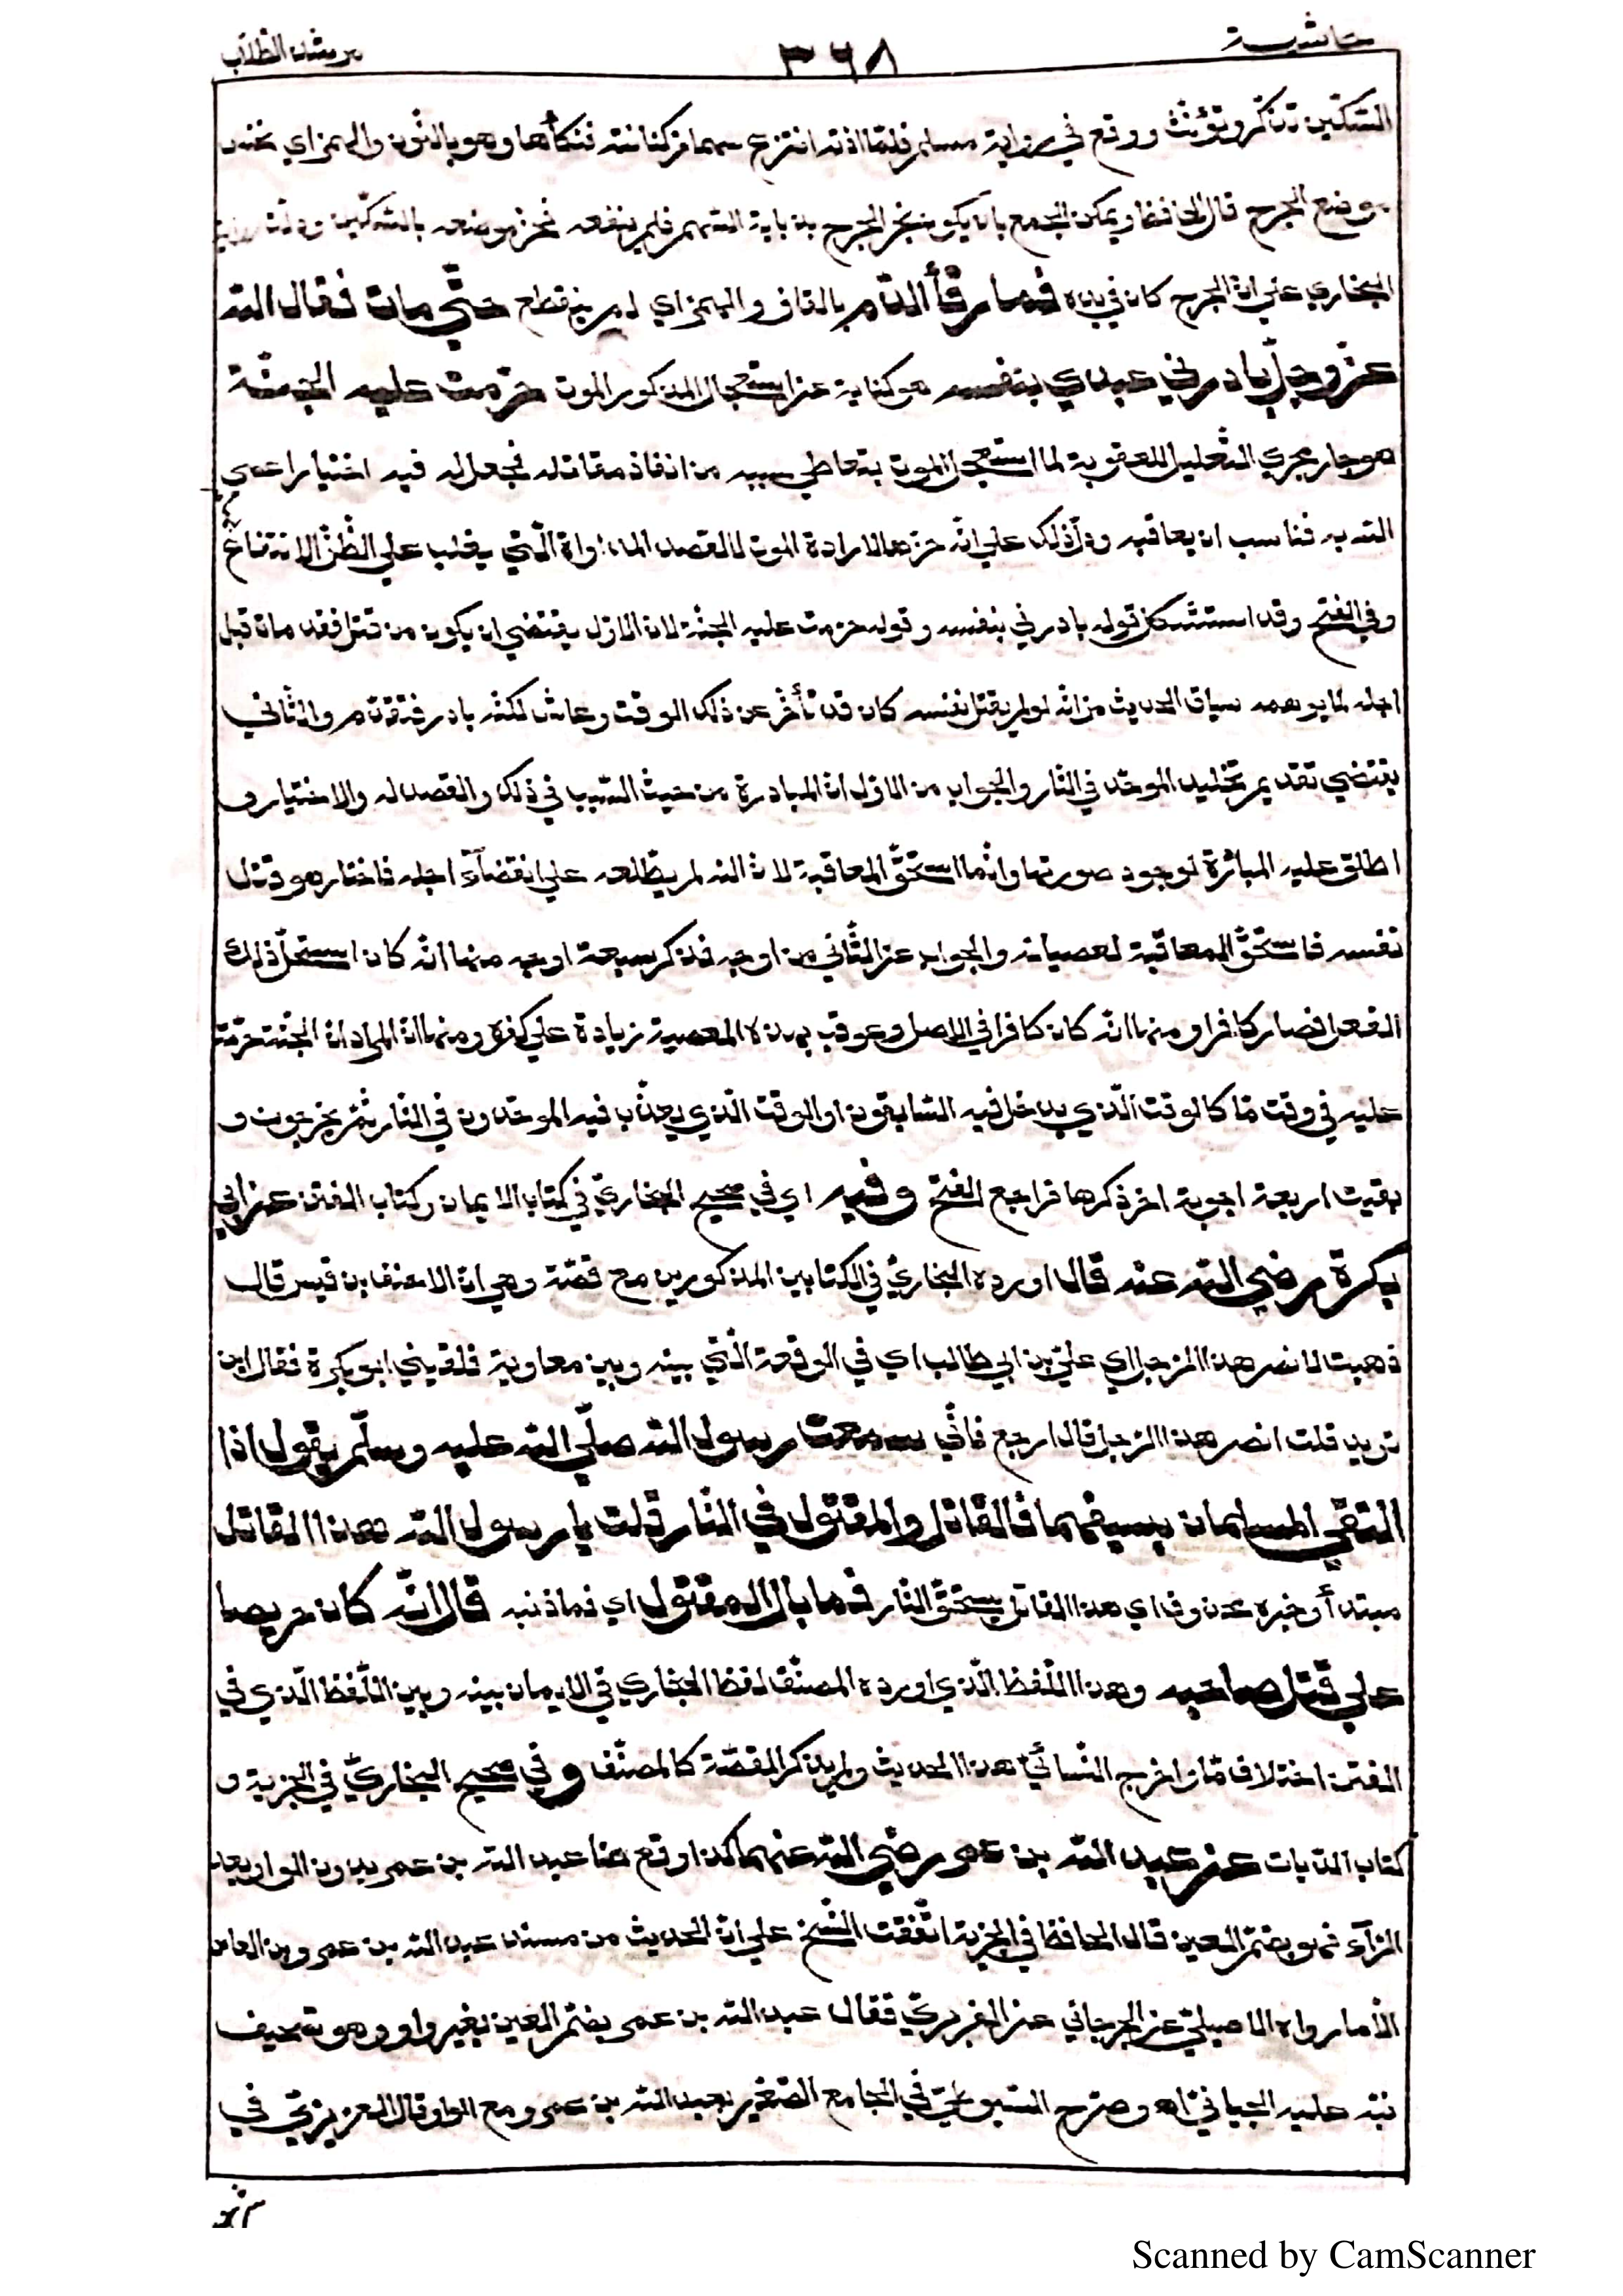 حاشية ٣٦٨ مرشد الطلاب
السّكّين تذكّر وتؤنّث ووقع في رواية مسلم فلمّا اذته انتزع سهما من كنانته فنكأها وهو بالنّون والهمز اي نخس
موضع الجرح قال الحافظ ويمكن الجمع بان يكون فجر الجرح بذبابة السّهم فلم ينفعه فحزّ موضعه بالسّكّين ودلّت رواية
البخاري علي انّ الجرح كان في يده فما رقأ الدّم بالقاف والهمز اي لم ينقطع حتّي مات فقال الله
عزّ وجلّ بادرني عبدي بنفسه هو كناية عن استعجال المذكور الموت حرّمت عليه الجنّة
هو جار مجري التّعليل للعقوبة لما استعجل الموت بتعاطي سببه من انفاذ مقاتله فجعل له فيه اختيارا عصي
الله به فناسب ان يعاقبه ودلّ ذلك علي انّه حزّها لارادة الموت لا لقصد المداواة الّتي يغلب علي الظّنّ الانتفاع
وفي الفتح وقد استشكل قوله بادرني بنفسه وقوله حرّمت عليه الجنّة لان الاوّل يقتضي ان يكون من قتل فقد مات قبل
اجله لما يوهمه سياق الحديث من انّه لو لم يقتل نفسه كان قد تأخّر عن ذلك الوقت وعاش لكنّه بادر فتقدّم والثّاني
يقتضي تقديم تخليد الموحّد في النّار والجواب من الاوّل انّ المبادرة من حيث السّبب في ذلك والقصد له والاختيار و
اطلق عليه المبادرة لوجود صورتها وانّما استحقّ المعاقبة لانّ الله لم يطّلعه علي انقضآء اجله فاختار هو قتل
نفسه فاستحقّ المعاقبة لعصيانه والجواب عن الثّاني من اوجه فذكر سبعة اوجه منها انّه كان استحلّ ذلك
الفعل فصار كافرا ومنها انّه كان كافرا في الاصل وعوقب بهذه المعصية زيادة علي كفره ومنها انّ المراد انّ الجنّة حرّمت
عليه في وقت مّا كالوقت الّذي يدخل فيه السّابقون او الوقت الّذي يعذّب فيه الموحّدون في النّار ثمّ يخرجون و
بقيت اربعة اجوبة اخر ذكرها فراجع الفتح وفيه اي في صحيح البخاريّ في كتاب الايمان وكتاب الفتن عن ابي
بكرة رضي الله عنه قال اورده البخاريّ في الكتابين المذكورين مع قصّة وهي انّ الاحنف بن قيس قال
ذهبت لانصر هذا الرّجل اي عليّ بن ابي طالب اي في الوقعة الّتي بينه وبين معاوية فلقيني ابو بكرة فقال اين
تريد قلت انصر هذا الرّجل قال ارجع فانّي سمعت رسول الله صلّي الله عليه وسلّم يقول اذا
التقي المسلمان بسيفهما فالقاتل والمقتول في النّار قلت يا رسول الله هذا القاتل
مبتدأ وخبره محذوف اي هذا القاتل يستحقّ النّار فما بال المقتول اي فما ذنبه قال انّه كان حريصا
علي قتل صاحبه وهذا اللّفظ الّذي اورده المصنّف لفظ البخاري في الايمان بينه وبين اللّفظ الّذي في
الفتن اختلاف مّا واخرج النّسائيّ هذا الحديث ولم يذكر القصّة كالمصنّف وفي صحيح البخاريّ في الجزية و
كتاب الدّيات عن عبد الله بن عمر رضي الله عنهما كذا وقع هنا عبد الله بن عمر بدون الواو بعد
الرّآء فهو بضمّ العين قال الحافظ في الجزية اتّفقت النّسخ علي انّ الحديث من مسند عبد الله بن عمرو بن العاص
الّا ما رواه الاصيليّ عن الجرجاني عن الفربريّ فقال عبد الله بن عمر بضمّ العين بغير واو وهو تصحيف
نبّه عليه الجياني اه وصرّح السّيوطيّ في الجامع الصّغير بعبد الله بن عمرو مع الواو قال العزيزيّ في
Scanned by CamScanner